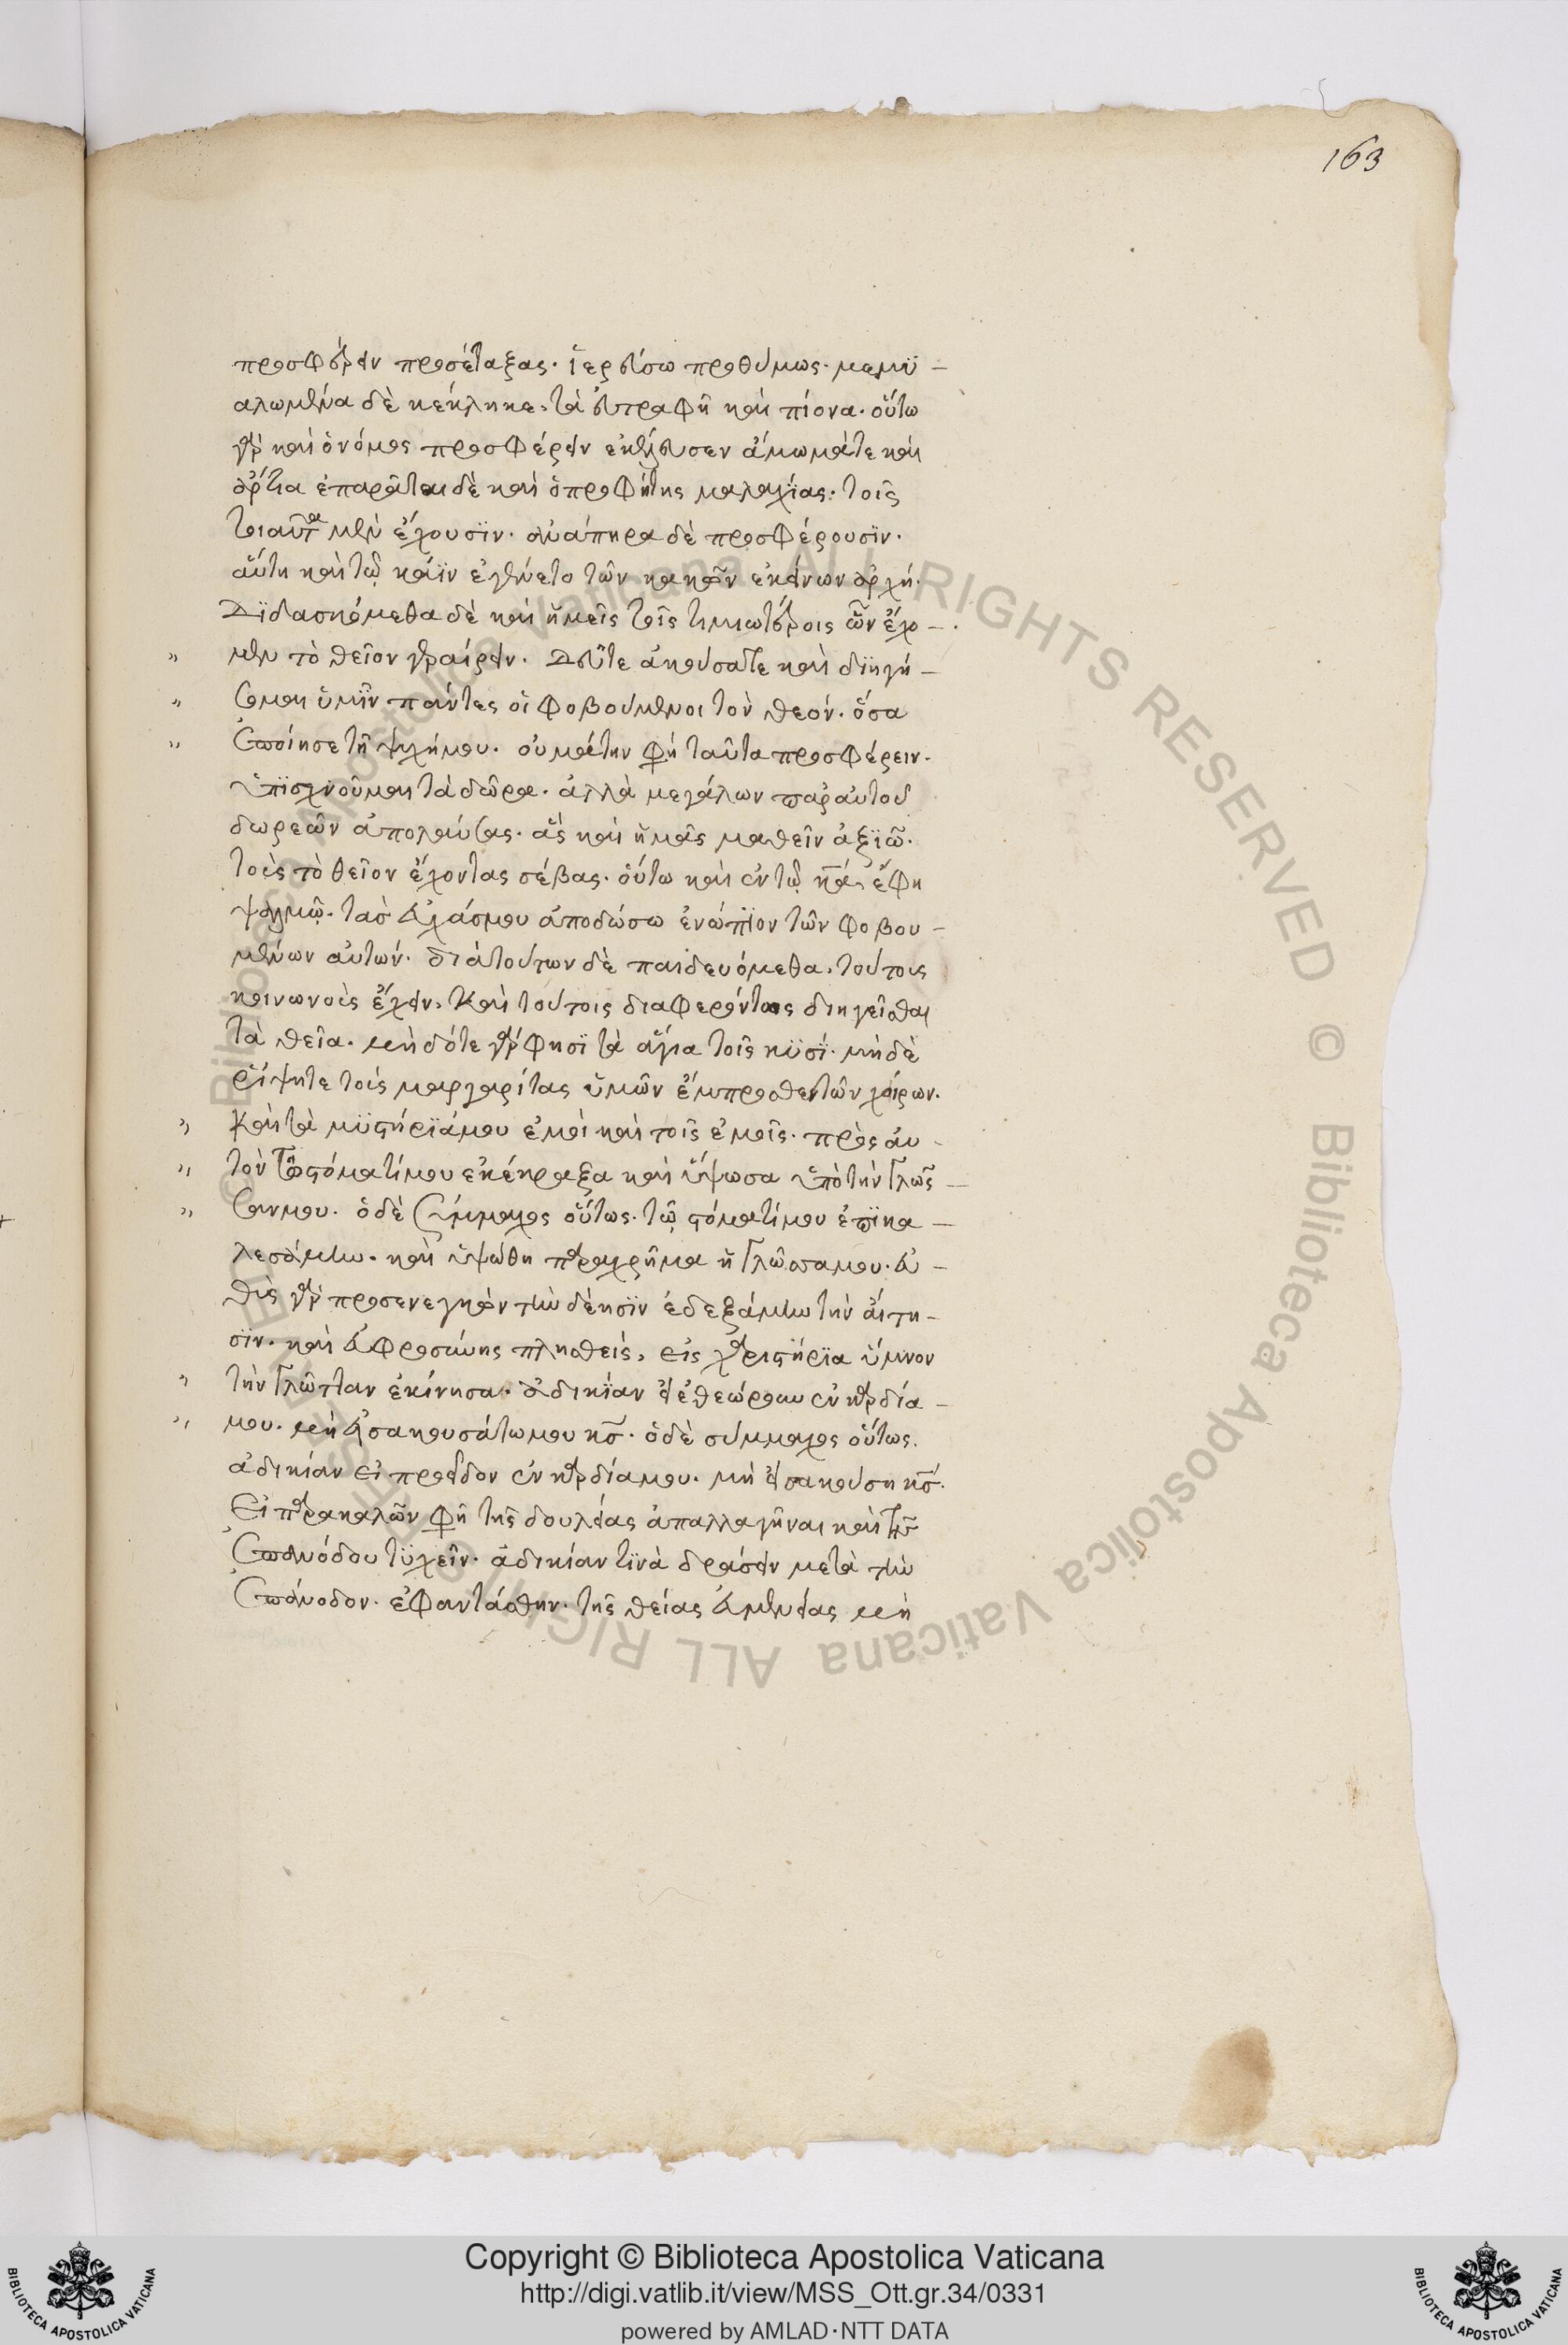 163
προσφέρειν προσέταξας· ἱερεύσω προθύμως· μεμυ –
αλωμένα δὲ κέκληκε, τὰ εὐτραφῆ καὶ πίονα· οὕτω
γὰρ καὶ ὁ νόμος προσφέρειν ἐκέλευσεν ἄμωμά τε καὶ
ἄρτια ἐπαρᾶται δὲ καὶ ὁ προφήτης μαλαχίας· τοῖς
τοιαῦτα μὲν ἔχουσϊν· ἀνάπηρα δὲ προσφέρουσϊν·
αὕτη καὶ τῷ κάϊν ἐγένετο τῶν κακῶν ἐκείνων ἀρχή·
Διδασκόμεθα δὲ καὶ ἡμεῖς τοῖς τιμιωτέροις ὧν ἔχο –
„ μεν τὸ θεῖον γεραίρειν· Δεῦτε ἀκούσατε καὶ διηγή –
„ σομαι ὑμῖν πάντες οἱ φοβούμενοι τὸν θεόν· ὅσα
„ ἐποίησε τῇ ψυχῇ μου· οὐ μάτην φησὶ ταῦτα προσφέρειν·
ὑπϊσχνοῦμαι τὰ δῶρα· ἀλλὰ μεγάλων παρ αὐτοῦ
δωρεῶν ἀπολαύσας· ἃς καὶ ἡμᾶς μαθεῖν ἀξϊῶ·
τοὺς τὸ θεῖον ἔχοντας σέβας· οὕτω καὶ ἐν τῷ κα, ἔφη
ψαλμῷ· τὰς εὐχάς μου ἀποδώσω ἐνώπϊον τῶν φοβου –
μένων αὐτών· διὰ τούτων δὲ παιδευόμεθα, τούτους
κοινωνοὺς ἔχειν, Καὶ τούτοις διαφερόντως διηγεῖσθαι
τὰ θεῖα· μὴ δότε γάρ φησϊ τὰ ἅγια τοῖς κϋσί· μὴ δὲ
ῥίψητε τοὺς μαργαρίτας ὑμῶν ἔμπροσθεν τῶν χοίρων·
„ Καὶ τὰ μϋστήρϊά μου ἐμοὶ καὶ τοῖς ἐμοῖς· πρὸς αυ –
„ τὸν τῷ στόματί μου ἐκέκραξα καὶ ὕψωσα ὑπὸ τὴν γλῶς –
„ σαν μου· ὁ δὲ Σύμμαχος οὕτως· τῷ στόματί μου ἐπϊκα –
λεσάμην· καὶ ὑψώθη παραχρῆμα ἡ γλῶσσα μου· εὐ –
θὺς γὰρ προσενεγκὼν τὴν δέησϊν ἐδεξάμην τὴν αἴτη –
σϊν· καὶ εὐφροσύνης πλησθείς, εἰς χαριστήρϊα ὕμνον
„ τὴν γλῶτταν ἐκίνησα· ἀδικίαν εἰ ἐθεώρουν ἐν καρδία –
„ μου· μὴ εἰσακουσάτω μου κς· ὁ δὲ σύμμαχος οὕτως·
ἀδικίαν εἰ προεῖδον ἐν καρδία μου· μὴ εἰσακούση κς·
Εἰ παρακαλῶν φησὶ τῆς δουλείας ἀπαλλαγῆναι καὶ τῆς
ἐπανόδου τϋχεῖν· ἀδικίαν τϊνὰ δράσειν μετὰ τὴν
ἐπάνοδον· ἐφαντάσθην· τῆς θείας εὐμενείας μὴ
Copyright © Biblioteca Apostolica Vaticana
http://digi.vatlib.it/view/MSS_Ott.gr.34/0331
powered by AMLAD·NTT DATA